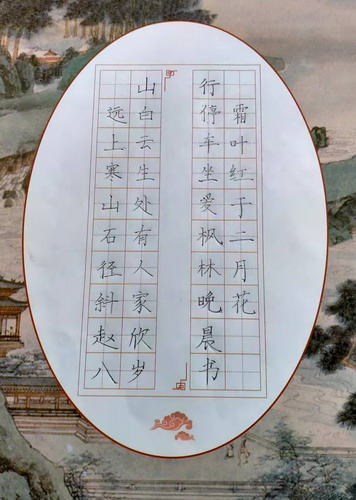 山行
远上寒山石径斜
白云生处有人家
停车坐爱枫林晚
霜叶红于二月花
赵欣晨书
八岁